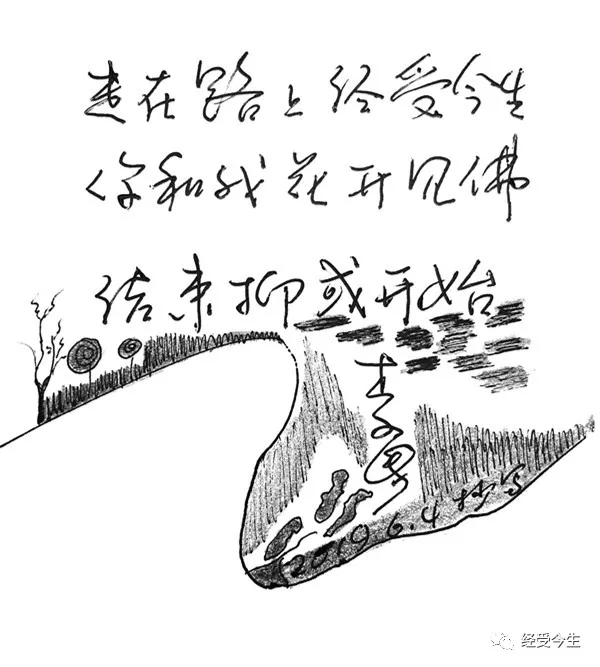 走在路上经受今生
你和我花开见佛
结束抑或开始
2019 6.4 抄写
经受今生